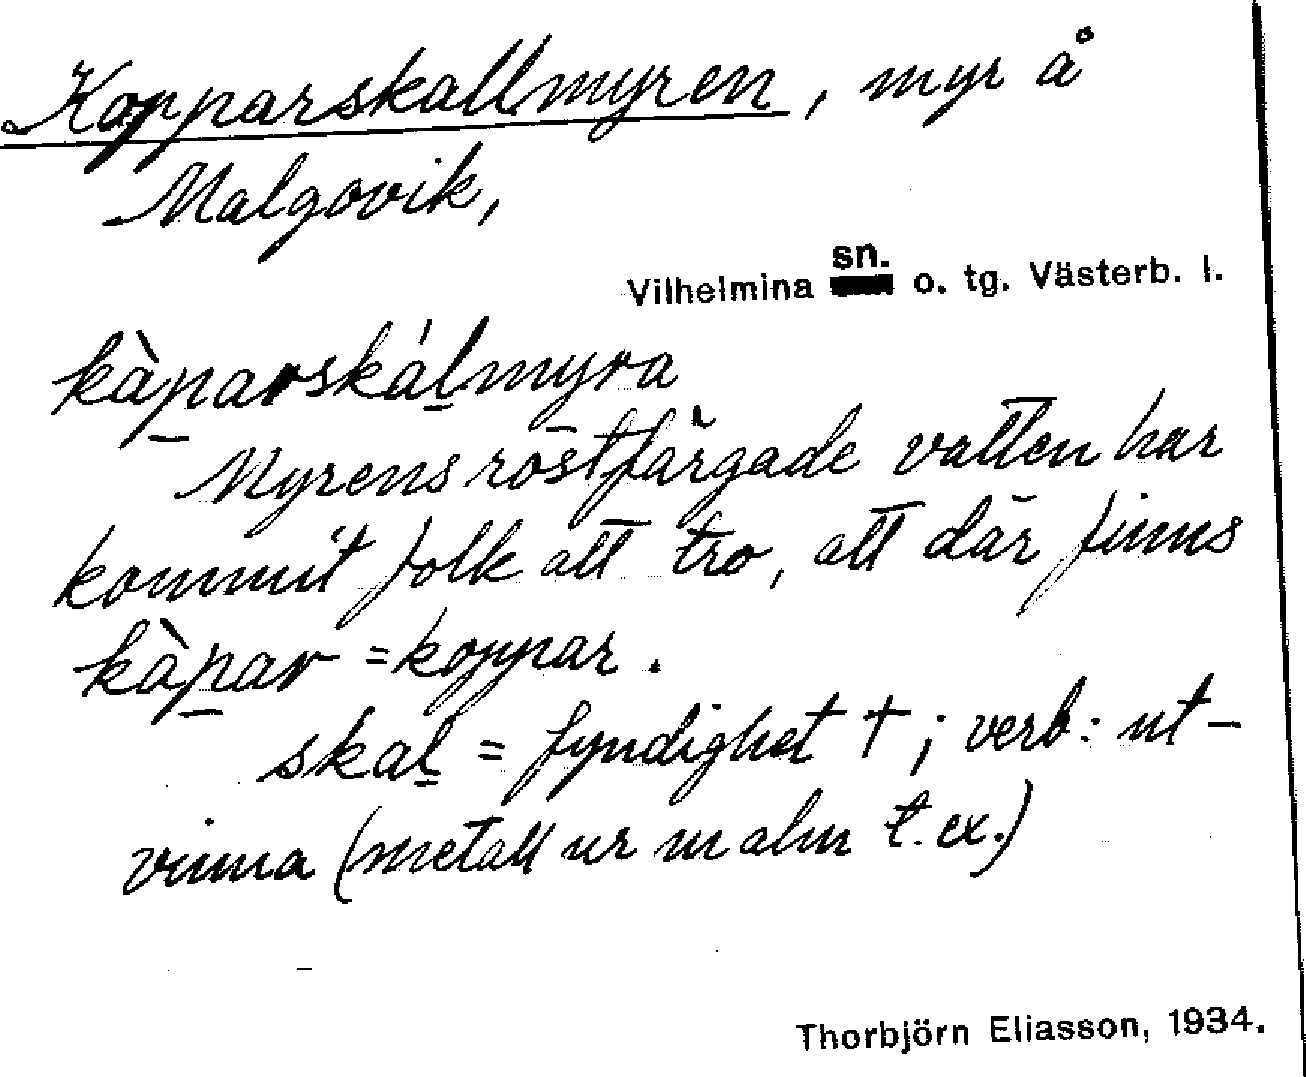 Kopparskallmyren, myr å
Malgovik,
sn.
Vilhelmina o. tg. Västerb. l.
kàp̱arskáḻmyra
Myrens rostfärgade vatten har
kommit folk att tro, att där finns
kàp̱ar = koppar.
skaḻ = fyndighet †; verb: ut-
vinna (metall ur malm t. ex.)
Thorbjörn Eliasson, 1934.